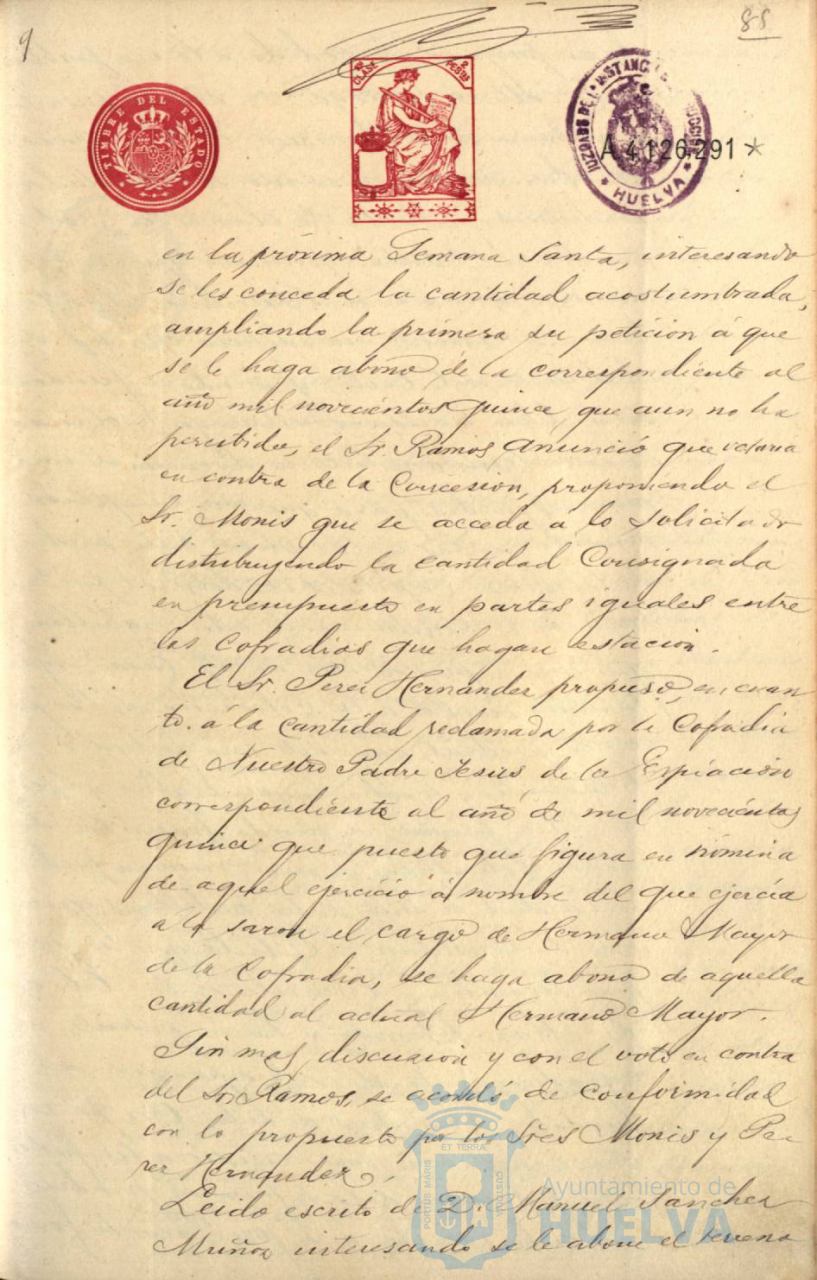 9
88
TIMBRE DEL ESTADO
CLASE
PESTAS
JUZGADO DE 1ª INSTANCIA
HUELVA
A4126291*
en la próxima Semana Santa, interesando
se les conceda la cantidad acostumbrada,
ampliando la primera su petición á que
se le haga abono de la correspondiente al
año mil novecientos quince, que aun no ha
percibido, el Sr. Ramos, anunció que votaria
en contra de la Concesion, proponiendo el
Sr. Monis que se acceda a lo solicitado
distribuyendo la cantidad Consignada
en presupuesto en partes iguales entre
las Cofradias que hagan estacion.
El Sr. Perez Hernandez propuso, en cuan
to á la cantidad reclamada por la Cofradia
de Nuestro Padre Jesús de la Expiación
correspondiente al año de mil novecientos
quince que puesto que figura en nómina
de aquel ejercicio á nombre del que ejercía
á la saron el cargo de Hermano Mayor
de la Cofradia, se haga abono de aquella
cantidad al actual Hermano Mayor.
Sin mas discusión y con el voto en contra
del Sr. Ramos, se acordó de conformidad
con lo propuesto por los Sres Monis y Pe
rez Hernandez.
Leido escrito de D. Manuel Sanchez
Muñoz interesando se le abone el terreno
PORTUS MARIS
ET TERRÆ
CUSTODIA
Ayuntamiento de
HUELVA